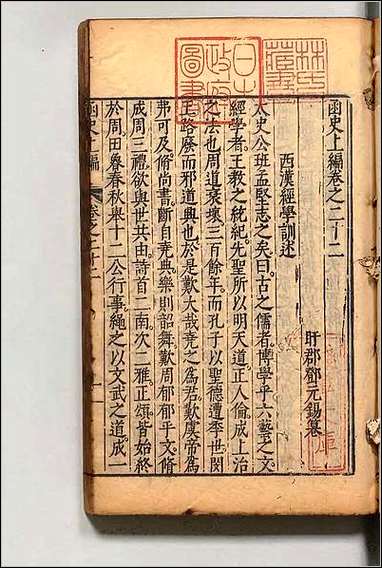 林氏藏書
日本政府圖書
函史上編卷之二十二
盱郡鄧元錫纂
西漢經學訓述
太史公班孟堅志之矣曰古之儒者博學乎六藝之文
經學者王教之統紀先聖所以明天道正人倫成上治
之法也周道衰壞三百餘年而孔子以聖德遭季世閔
王路廢而邪道興也於是歎大哉堯之爲君歎虞帝爲
弗可及脩尚書斷自堯典樂則韶舞歎周郁郁乎文脩
成周三禮欲與世共由詩首二南次二雅正頌皆始終
於周因魯春秋舉十二公行事繩之以文武之道成一
函史上編 卷之二十二